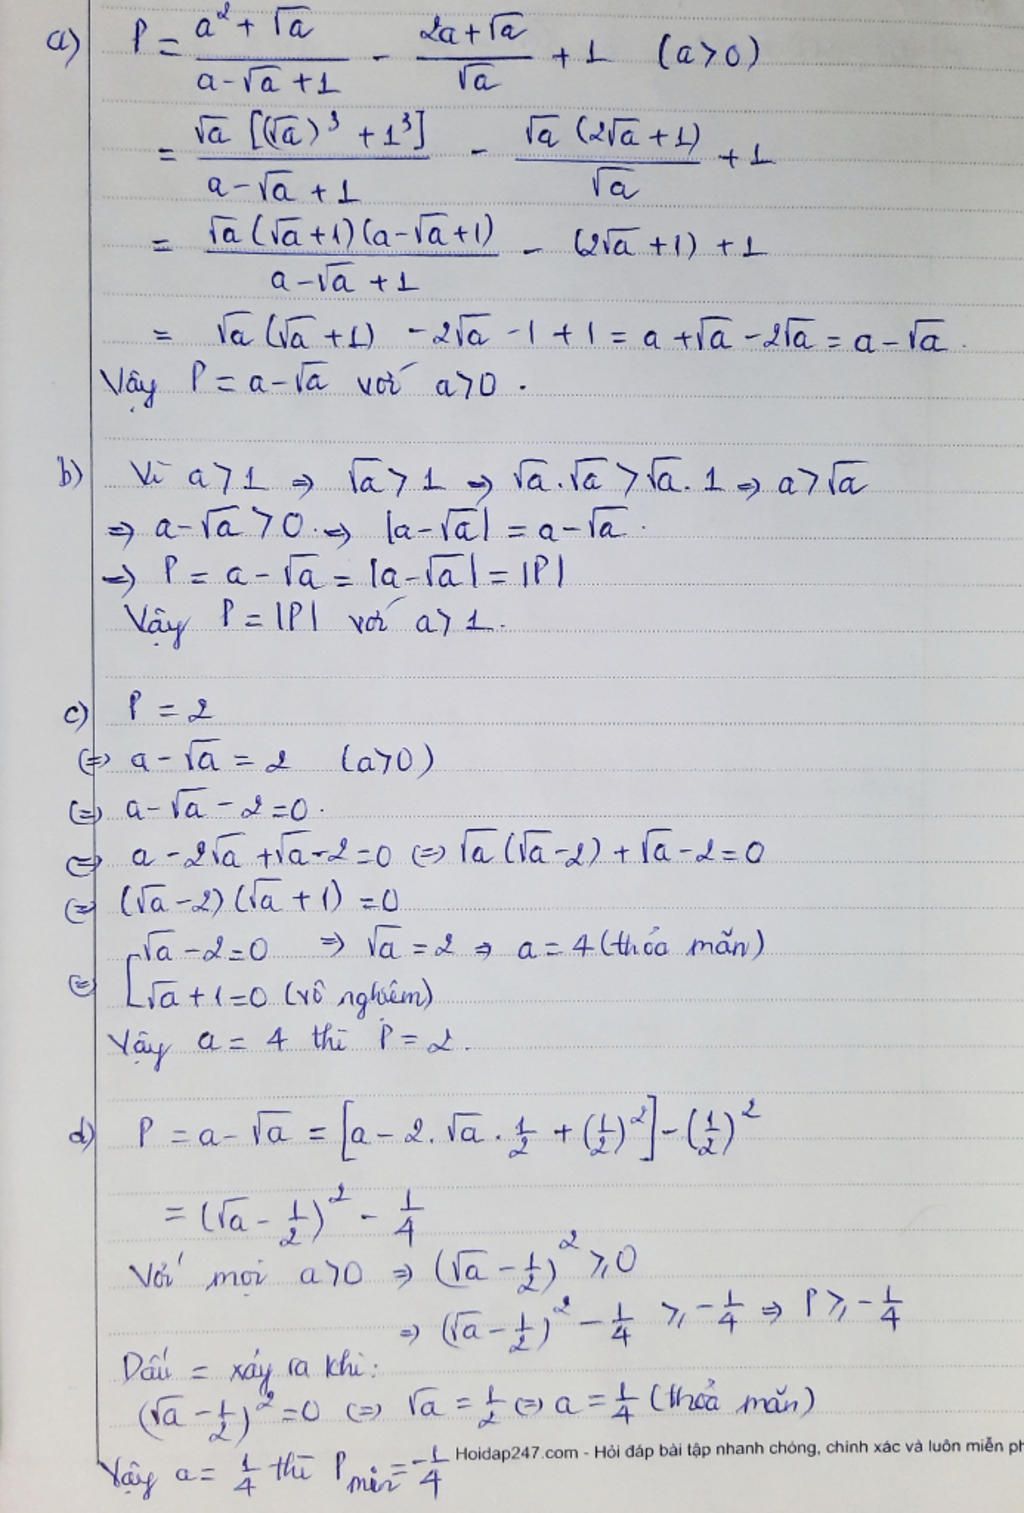 a) P = (a² + √a)/(a - √a + 1) - (2a + √a)/√a + 1 (a > 0)
= √a [(√a)³ + 1³]/(a - √a + 1) - √a (2√a + 1)/√a + 1
= √a (√a + 1)(a - √a + 1)/(a - √a + 1) - (2√a + 1) + 1
= √a (√a + 1) - 2√a - 1 + 1 = a + √a - 2√a = a - √a.
Vậy P = a - √a với a > 0.
b) Vì a > 1 ⇒ √a > 1 ⇒ √a . √a > √a . 1 ⇒ a > √a
⇒ a - √a > 0. ⇒ |a - √a| = a - √a.
⇒ P = a - √a = |a - √a| = |P|
Vậy P = |P| với a > 1.
c) P = 2
⇔ a - √a = 2 (a > 0)
⇔ a - √a - 2 = 0.
⇔ a - 2√a + √a - 2 = 0 ⇔ √a (√a - 2) + √a - 2 = 0
⇔ (√a - 2)(√a + 1) = 0
⇔ [ √a - 2 = 0 ⇒ √a = 2 ⇒ a = 4 (thỏa mãn)
√a + 1 = 0 (vô nghiệm)
Vậy a = 4 thì P = 2.
d) P = a - √a = [a - 2. √a . 1/2 + (1/2)²] - (1/2)²
= (√a - 1/2)² - 1/4
Với mọi a > 0 ⇒ (√a - 1/2)² ≥ 0
⇒ (√a - 1/2)² - 1/4 ≥ -1/4 ⇒ P ≥ -1/4
Dấu = xảy ra khi:
(√a - 1/2)² = 0 ⇔ √a = 1/2 ⇔ a = 1/4 (thoả mãn)
Vậy a = 1/4 thì P min = -1/4
Hoidap247.com - Hỏi đáp bài tập nhanh chóng, chính xác và luôn miễn ph